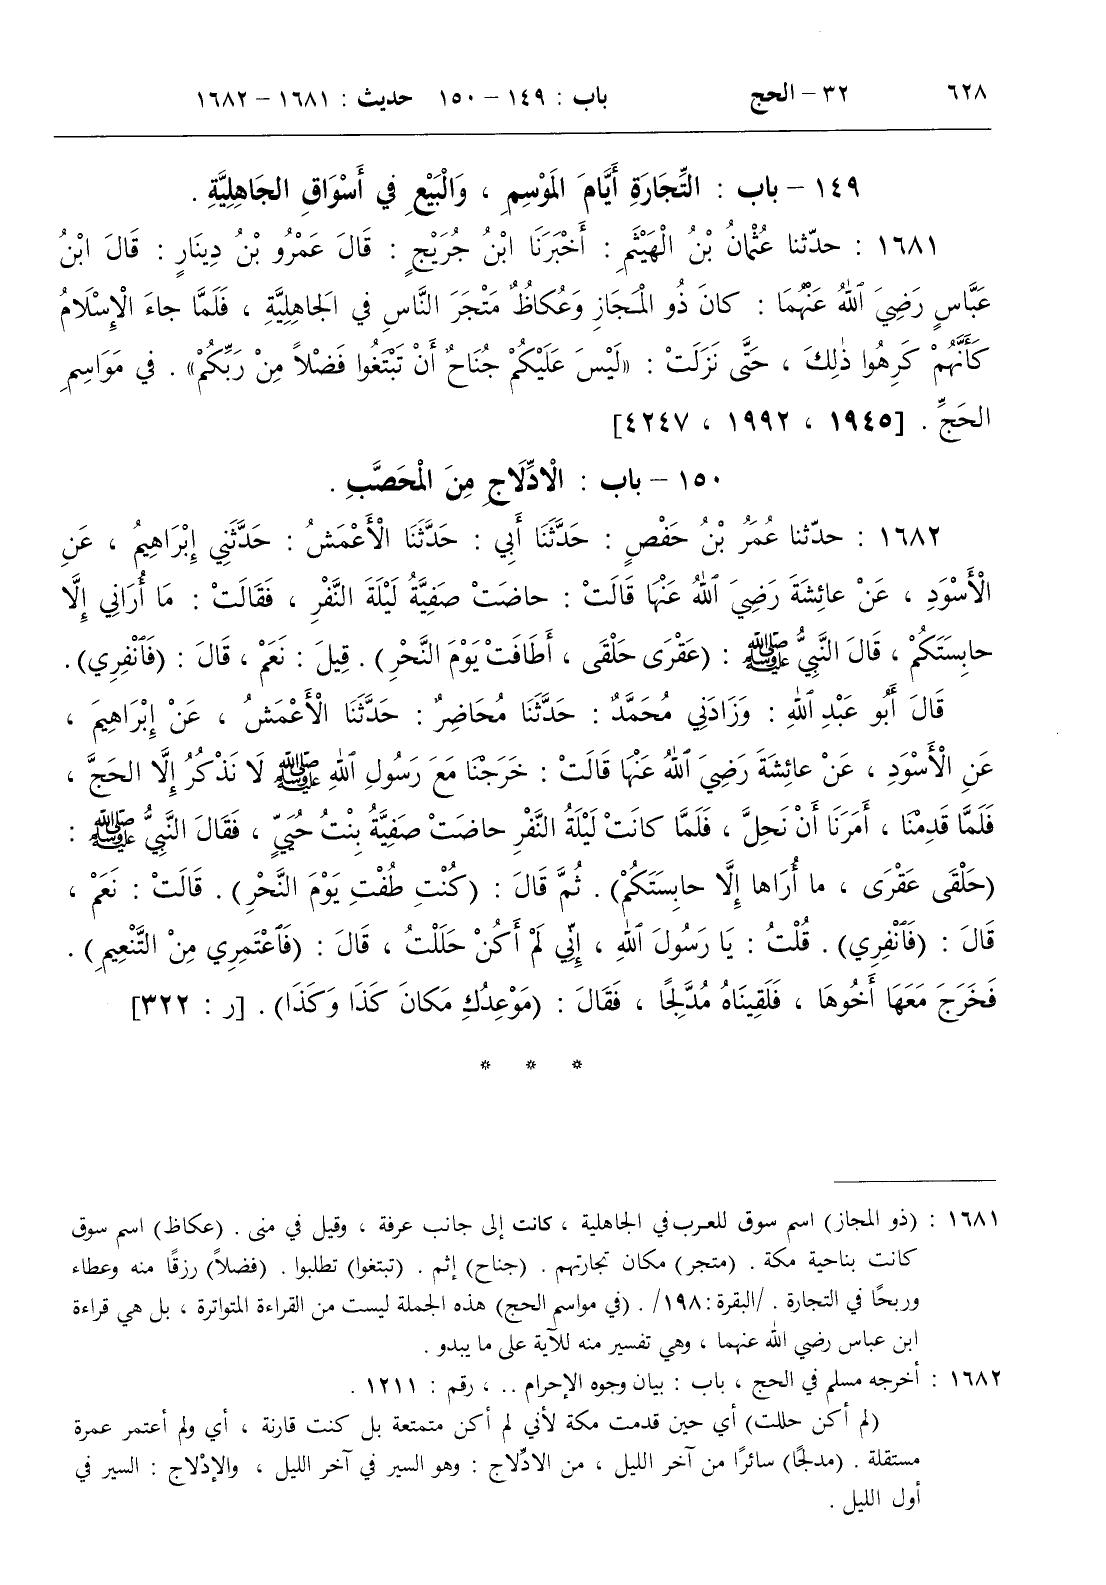 ٦٢٨ ٣٢ - الحج باب : ١٤٩ - ١٥٠ حديث : ١٦٨١ - ١٦٨٢
١٤٩ - باب : التِّجَارَةِ أَيَّامَ المَوْسِمِ ، وَالْبَيْعِ في أَسْوَاقِ الجَاهِلِيَّةِ .
١٦٨١ : حدّثنا عُثْمانُ بْنُ الْهَيْثَمِ : أَخْبَرَنَا ابْنُ جُرَيْجٍ : قَالَ عَمْرُو بْنُ دِينَارٍ : قَالَ ابْنُ
عَبَّاسٍ رَضِيَ ٱللهُ عَنْهُمَا : كانَ ذُو المَجَازِ وَعُكاظٌ مَتْجَرَ النَّاسِ في الجَاهِلِيَّةِ ، فَلَمَّا جاءَ الْإِسْلَامُ
كَأَنَّهُمْ كَرِهُوا ذٰلِكَ ، حَتَّى نَزَلَتْ : «لَيْسَ عَلَيْكُمْ جُنَاحٌ أَنْ تَبْتَغُوا فَضْلاً مِنْ رَبِّكُمْ» . في مَوَاسِمِ
الحَجِّ . [١٩٤٥ ، ١٩٩٢ ، ٤٢٤٧]
١٥٠ - باب : الْادِّلَاجِ مِنَ المُحَصَّبِ .
١٦٨٢ : حدّثنا عُمَرُ بْنُ حَفْصٍ : حَدَّثَنَا أَبِي : حَدَّثَنَا الْأَعْمَشُ : حَدَّثَنِي إِبْرَاهِيمُ ، عَنِ
الْأَسْوَدِ ، عَنْ عائِشَةَ رَضِيَ ٱللهُ عَنْهَا قَالَتْ : حاضَتْ صَفِيَّةُ لَيْلَةَ النَّفْرِ ، فَقَالَتْ : مَا أُرَانِي إِلَّا
حابِسَتَكُمْ ، قَالَ النَّبِيُّ ﷺ : (عَقْرَى حَلْقَى ، أَطَافَتْ يَوْمَ النَّحْرِ) . قِيلَ : نَعَمْ ، قَالَ : (فَٱنْفِرِي) .
قَالَ أَبُو عَبْدِ ٱللهِ : وَزَادَنِي مُحَمَّدٌ : حَدَّثَنَا مُحَاضِرٌ : حَدَّثَنَا الْأَعْمَشُ ، عَنْ إِبْرَاهِيمَ ،
عَنِ الْأَسْوَدِ ، عَنْ عائِشَةَ رَضِيَ ٱللهُ عَنْهَا قَالَتْ : خَرَجْنَا مَعَ رَسُولِ ٱللهِ ﷺ لَا نَذْكُرُ إِلَّا الحَجَّ ،
فَلَمَّا قَدِمْنَا ، أَمَرَنَا أَنْ نَحِلَّ ، فَلَمَّا كانَتْ لَيْلَةُ النَّفْرِ حاضَتْ صَفِيَّةُ بِنْتُ حُيَيٍّ ، فَقَالَ النَّبِيُّ ﷺ :
(حَلْقَى عَقْرَى ، ما أُرَاها إِلَّا حابِسَتَكُمْ) . ثُمَّ قَالَ : (كُنْتِ طُفْتِ يَوْمَ النَّحْرِ) . قَالَتْ : نَعَمْ ،
قَالَ : (فَٱنْفِرِي) . قُلْتُ : يَا رَسُولَ ٱللهِ ، إِنِّي لَمْ أَكُنْ حَلَلْتُ ، قَالَ : (فَٱعْتَمِرِي مِنْ التَّنْعِيمِ) .
فَخَرَجَ مَعَهَا أَخُوهَا ، فَلَقِينَاهُ مُدَّلِجًا ، فَقَالَ : (مَوْعِدُكِ مَكانَ كَذَا وَكَذَا) . [ر : ٣٢٢]
* * *
١٦٨١ : (ذو المجاز) اسم سوق للعرب في الجاهلية ، كانت إلى جانب عرفة ، وقيل في منى . (عكاظ) اسم سوق
كانت بناحية مكة . (متجر) مكان تجارتهم . (جناح) إثم . (تبتغوا) تطلبوا . (فضلاً) رزقًا منه وعطاء
وربحًا في التجارة . /البقرة :١٩٨/ . (في مواسم الحج) هذه الجملة ليست من القراءة المتواترة ، بل هي قراءة
ابن عباس رضي الله عنهما ، وهي تفسير منه للآية على ما يبدو .
١٦٨٢ : أخرجه مسلم في الحج ، باب : بيان وجوه الإحرام .. ، رقم : ١٢١١ .
(لم أكن حللت) أي حين قدمت مكة لأني لم أكن متمتعة بل كنت قارنة ، أي ولم أعتمر عمرة
مستقلة . (مدلجًا) سائرًا من آخر الليل ، من الادِّلاج : وهو السير في آخر الليل ، والإدْلاج : السير في
أول الليل .